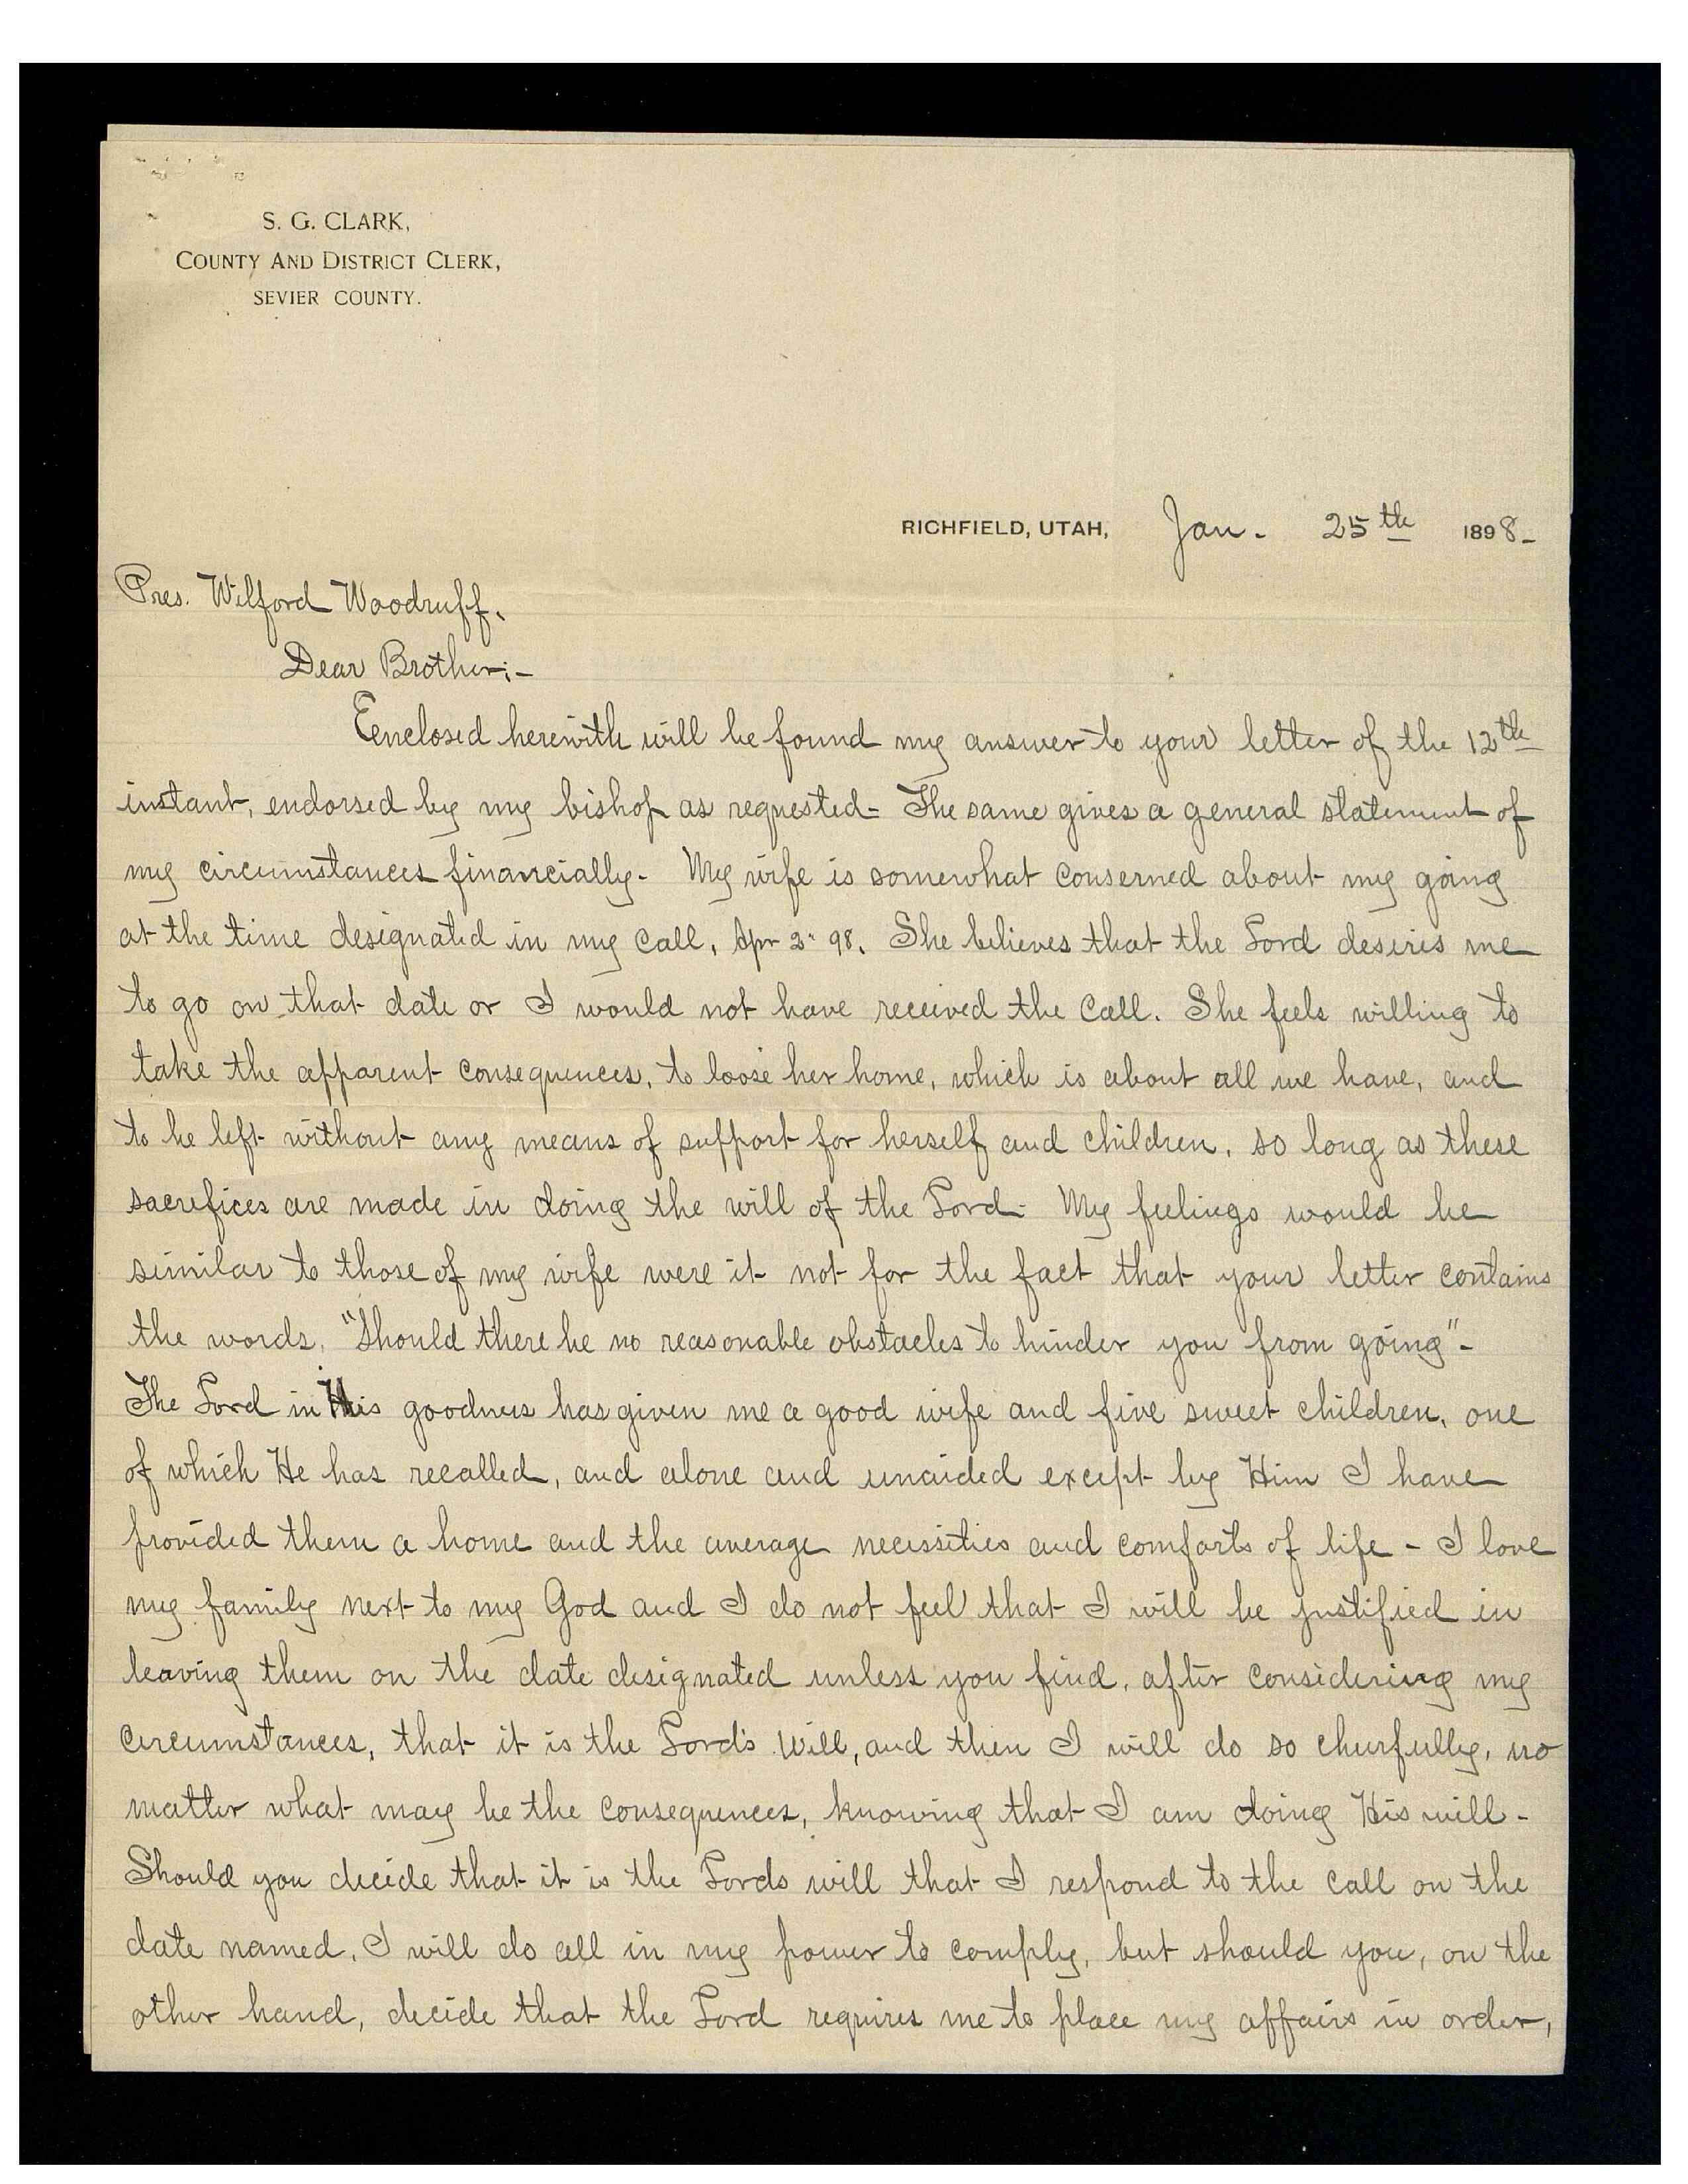 S. G. CLARK,
COUNTY AND DISTRICT CLERK,
SEVIER COUNTY.
RICHFIELD, UTAH, Jan. 25th 1898-
Pres. Wilford Woodruff.
Dear Brother:-
Eenclosed herewith will be found my answer to your letter of the 12th
instant, endorsed by my bishop as requested- The same gives a general statement of
my circumstances financially- My wife is somewhat conserned about my going
at the time designated in my call, Apr 2" 98. She believes that the Lord desires me
to go on that date or I would not have received the call. She feels willing to
take the apparent consequences, to loose her home, which is about all we have, and
to be left without any means of support for herself and children, so long as these
sacrefices are made in doing the will of the Lord- My feelings would be
similar to those of my wife were it not for the fact that your letter contains
the words, "Should there be no reasonable obstacles to hinder you from going"-
The Lord in His goodness has given me a good wife and five sweet children, one
of which He has recalled, and alone and unaided except by Him I have
provided them a home and the average necissities and comforts of life - I love
my family next to my God and I do not feel that I will be justified in
leaving them on the date designated unless you find, after considering my
circumstances, that it is the Lord's will, and then I will do so churfully, no
matter what may be the consequences, knowing that I am doing His will-
Should you decide that it is the Lords will that I respond to the call on the
date named, I will do all in my power to comply, but should you, on the
other hand, decide that the Lord requires me to place my affairs in order,